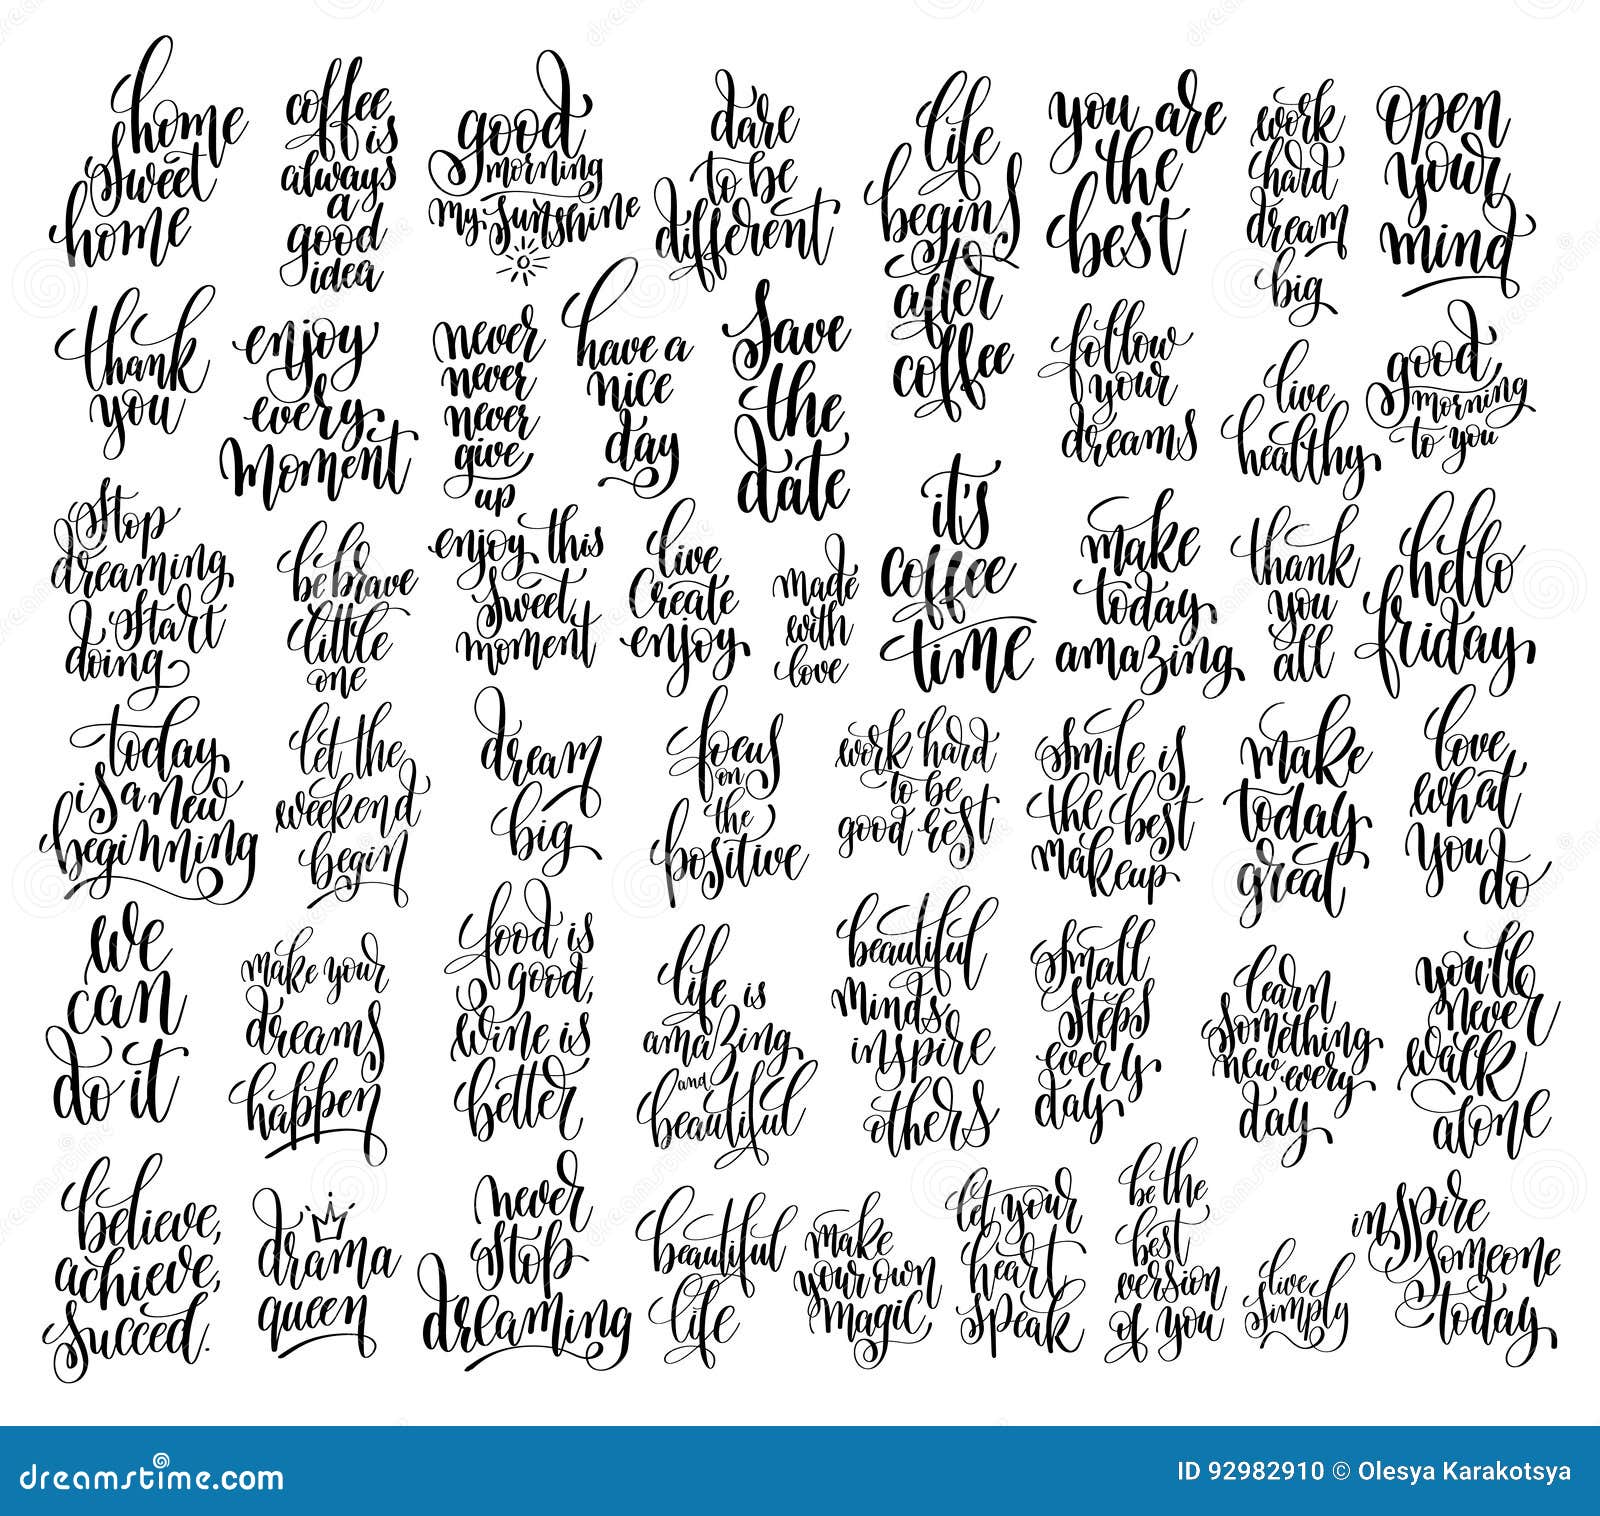 home
sweet
home
coffee
is
always
a
good
idea
good
morning
my sunshine
dare
to be
different
life
begins
after
coffee
you are
the
best
work
hard
dream
big
open
your
mind
thank
you
enjoy
every
moment
never
never
never
give
up
have a
nice
day
save
the
date
follow
your
dreams
live
healthy
good
morning
to you
stop
dreaming
start
doing
be brave
little
one
enjoy this
sweet
moment
live
create
enjoy
made
with
love
it's
coffee
time
make
today
amazing
thank
you
all
hello
friday
today
is a new
beginning
let the
weekend
begin
dream
big
focus
on
the
positive
work hard
to be
good rest
smile is
the best
makeup
make
today
great
love
what
you
do
we
can
do it
make your
dreams
happen
food is
good,
wine is
better
life is
amazing
and
beautiful
beautiful
minds
inspire
others
small
steps
every
day
learn
something
new every
day
you'll
never
walk
alone
believe,
achieve,
succeed.
drama
queen
never
stop
dreaming
beautiful
life
make
your own
magic
let your
heart
speak
be the
best
version
of you
live
simply
inspire
someone
today
dreamstime.com
ID 92982910 © Olesya Karakotsya